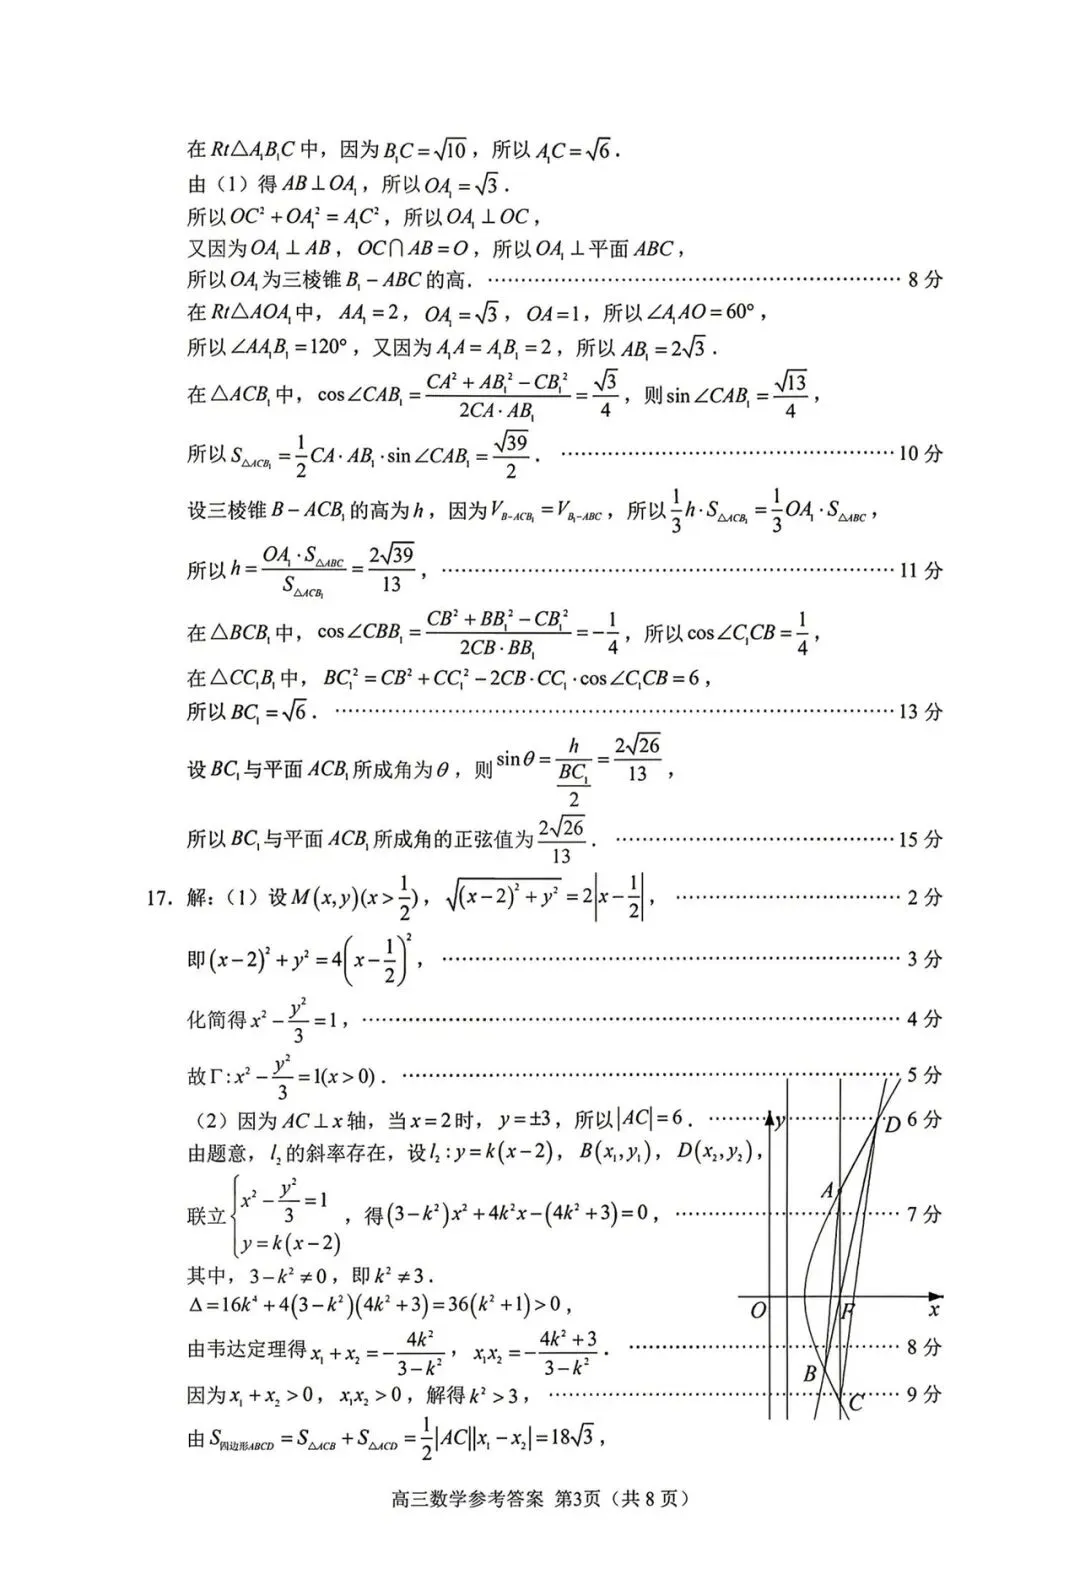 在 Rt△A₁B₁C 中，因为 B₁C=√10，所以 A₁C=√6．
由（1）得 AB⊥OA₁，所以 OA₁=√3．
所以 OC²+OA₁²=A₁C²，所以 OA₁⊥OC，
又因为 OA₁⊥AB，OC∩AB=O，所以 OA₁⊥平面 ABC，
所以 OA₁ 为三棱锥 B₁−ABC 的高．……8 分
在 Rt△AOA₁ 中，AA₁=2，OA₁=√3，OA=1，所以∠A₁AO=60°，
所以∠AA₁B₁=120°，又因为 A₁A=A₁B₁=2，所以 AB₁=2√3．
在△ACB₁ 中，cos∠CAB₁=(CA²+AB₁²−CB₁²)/(2CA·AB₁)=√3/4，则 sin∠CAB₁=√13/4，
所以 S△ACB₁=1/2 CA·AB₁·sin∠CAB₁=√39/2．……10 分
设三棱锥 B−ACB₁ 的高为 h，因为 V_{B−ACB₁}=V_{B₁−ABC}，所以 1/3 h·S△ACB₁=1/3 OA₁·S△ABC，
所以 h=(OA₁·S△ABC)/S△ACB₁=2√39/13，……11 分
在△BCB₁ 中，cos∠CBB₁=(CB²+BB₁²−CB₁²)/(2CB·BB₁)=−1/4，所以 cos∠C₁CB=1/4，
在△CC₁B₁ 中，BC₁²=CB²+CC₁²−2CB·CC₁·cos∠C₁CB=6，
所以 BC₁=√6．……13 分
设 BC₁ 与平面 ACB₁ 所成角为 θ，则 sinθ=h/(BC₁/2)=2√26/13，
所以 BC₁ 与平面 ACB₁ 所成角的正弦值为 2√26/13．……15 分
17．解：（1）设 M(x,y)(x>1/2)，√((x−2)²+y²)=2|x−1/2|，……2 分
即 (x−2)²+y²=4(x−1/2)²，……3 分
化简得 x²−y²/3=1，……4 分
故 Γ:x²−y²/3=1(x>0)．……5 分
（2）因为 AC⊥x 轴，当 x=2 时，y=±3，所以|AC|=6．……6 分
由题意，l₂ 的斜率存在，设 l₂:y=k(x−2)，B(x₁,y₁)，D(x₂,y₂)，
联立{x²−y²/3=1
y=k(x−2)，得(3−k²)x²+4k²x−(4k²+3)=0，……7 分
其中，3−k²≠0，即 k²≠3．
Δ=16k⁴+4(3−k²)(4k²+3)=36(k²+1)>0，
由韦达定理得 x₁+x₂=−4k²/(3−k²)，x₁x₂=−(4k²+3)/(3−k²)．……8 分
因为 x₁+x₂>0，x₁x₂>0，解得 k²>3，……9 分
由 S四边形ABCD=S△ACB+S△ACD=1/2|AC||x₁−x₂|=18√3，
y
D
A
O
F
x
B
C
高三数学参考答案 第3页（共 8 页）